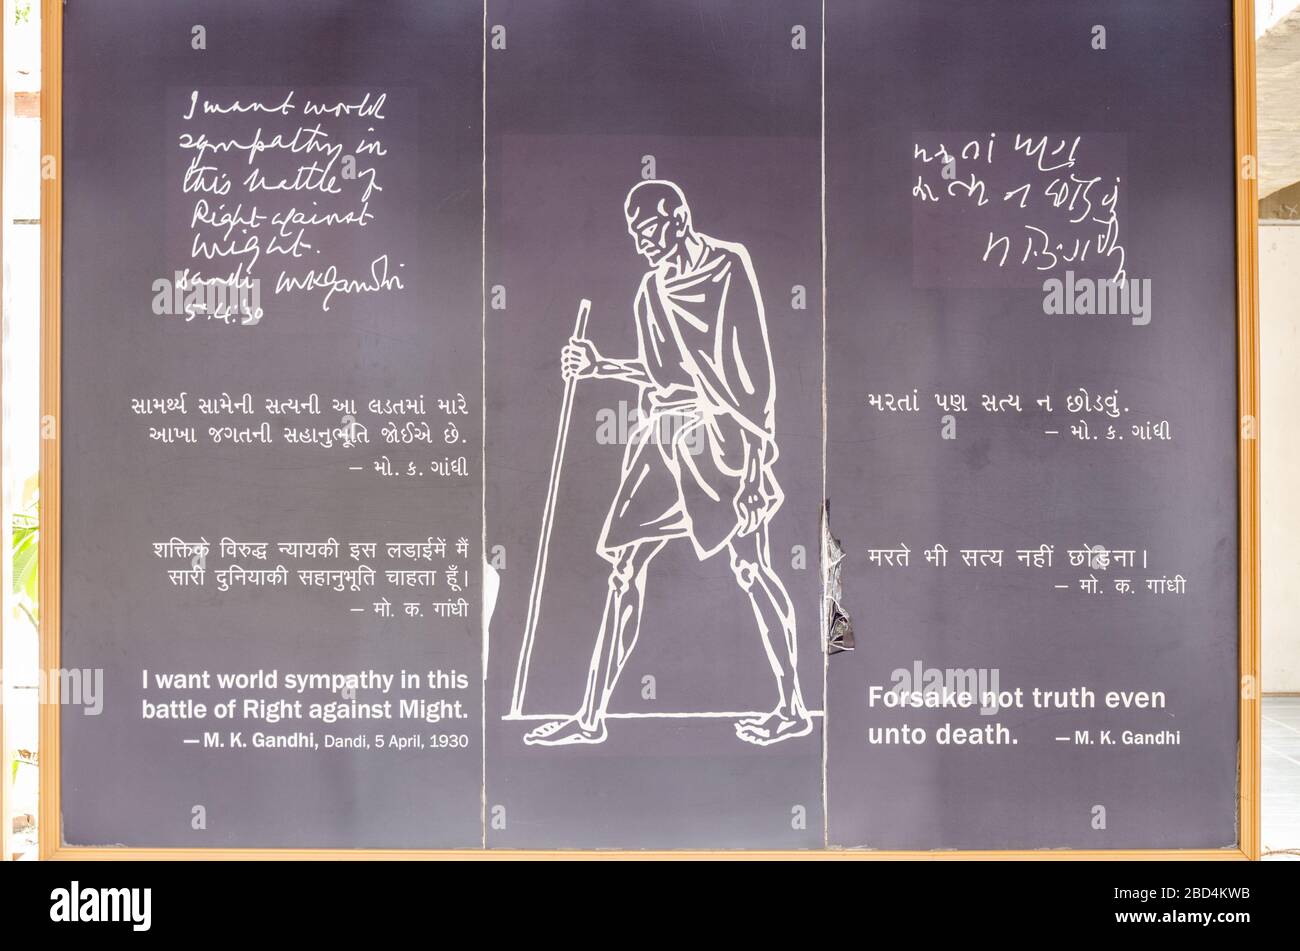 I want world
sympathy in
this battle of
Right against
might.
Dandi MKGandhi
5.4.'30
સામર્થ્ય સામેની સત્યની આ લડતમાં મારે
આખા જગતની સહાનુભૂતિ જોઈએ છે.
– મો. ક. ગાંધી
शक्तिके विरुद्ध न्यायकी इस लड़ाईमें मैं
सारी दुनियाकी सहानुभूति चाहता हूँ।
– मो. क. गांधी
I want world sympathy in this
battle of Right against Might.
– M. K. Gandhi, Dandi, 5 April, 1930
મરતાં પણ
સત્ય ન છોડવું
મો. ક. ગાંધી
મરતાં પણ સત્ય ન છોડવું.
– મો. ક. ગાંધી
मरते भी सत्य नहीं छोड़ना।
– मो. क. गांधी
Forsake not truth even
unto death. – M. K. Gandhi
alamy
Image ID: 2BD4KWB
www.alamy.com